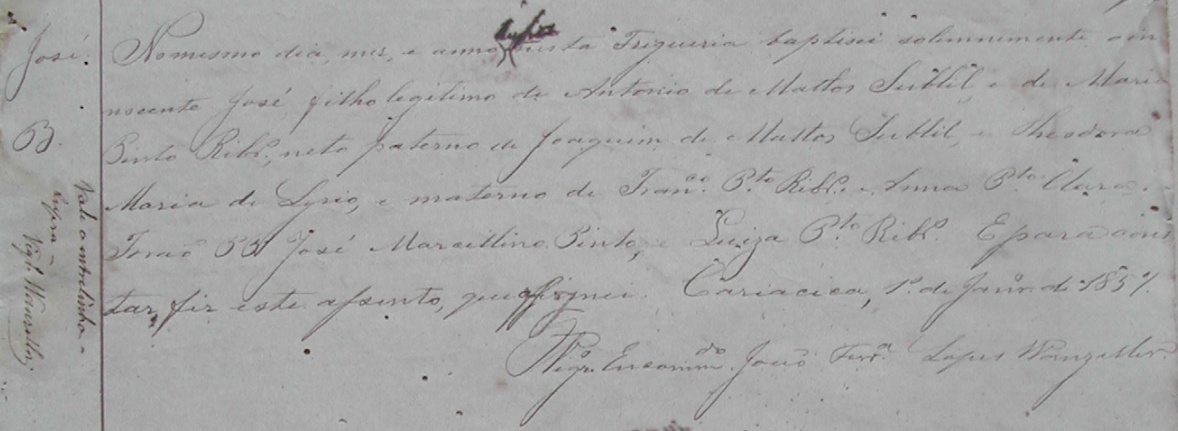 José.
B.
Vale a entrelinha -
supra -
Vigr.º Wanzeller
supra
No mesmo dia, mez, e anno nesta Freguezia baptisei solemnemente o in
nocente José filho legitimo de Antonio de Mattos Subtil e de Maria
Pinto Ribr.º, neto paterno de Joaquim de Mattos Subtil, e Theodora
Maria de Lyrio, e materno de Fran.co P.to Ribr.º e Anna P.to Clara.
Forão PP José Marcellino Pinto, e Luiza P.to Ribr.º E para cons
tar, fiz este assento, que assignei. Cariacica, 1º de Janr.º de 185
Vigr.º Encomm.do João Ferr.ª Lopes Wanzeller